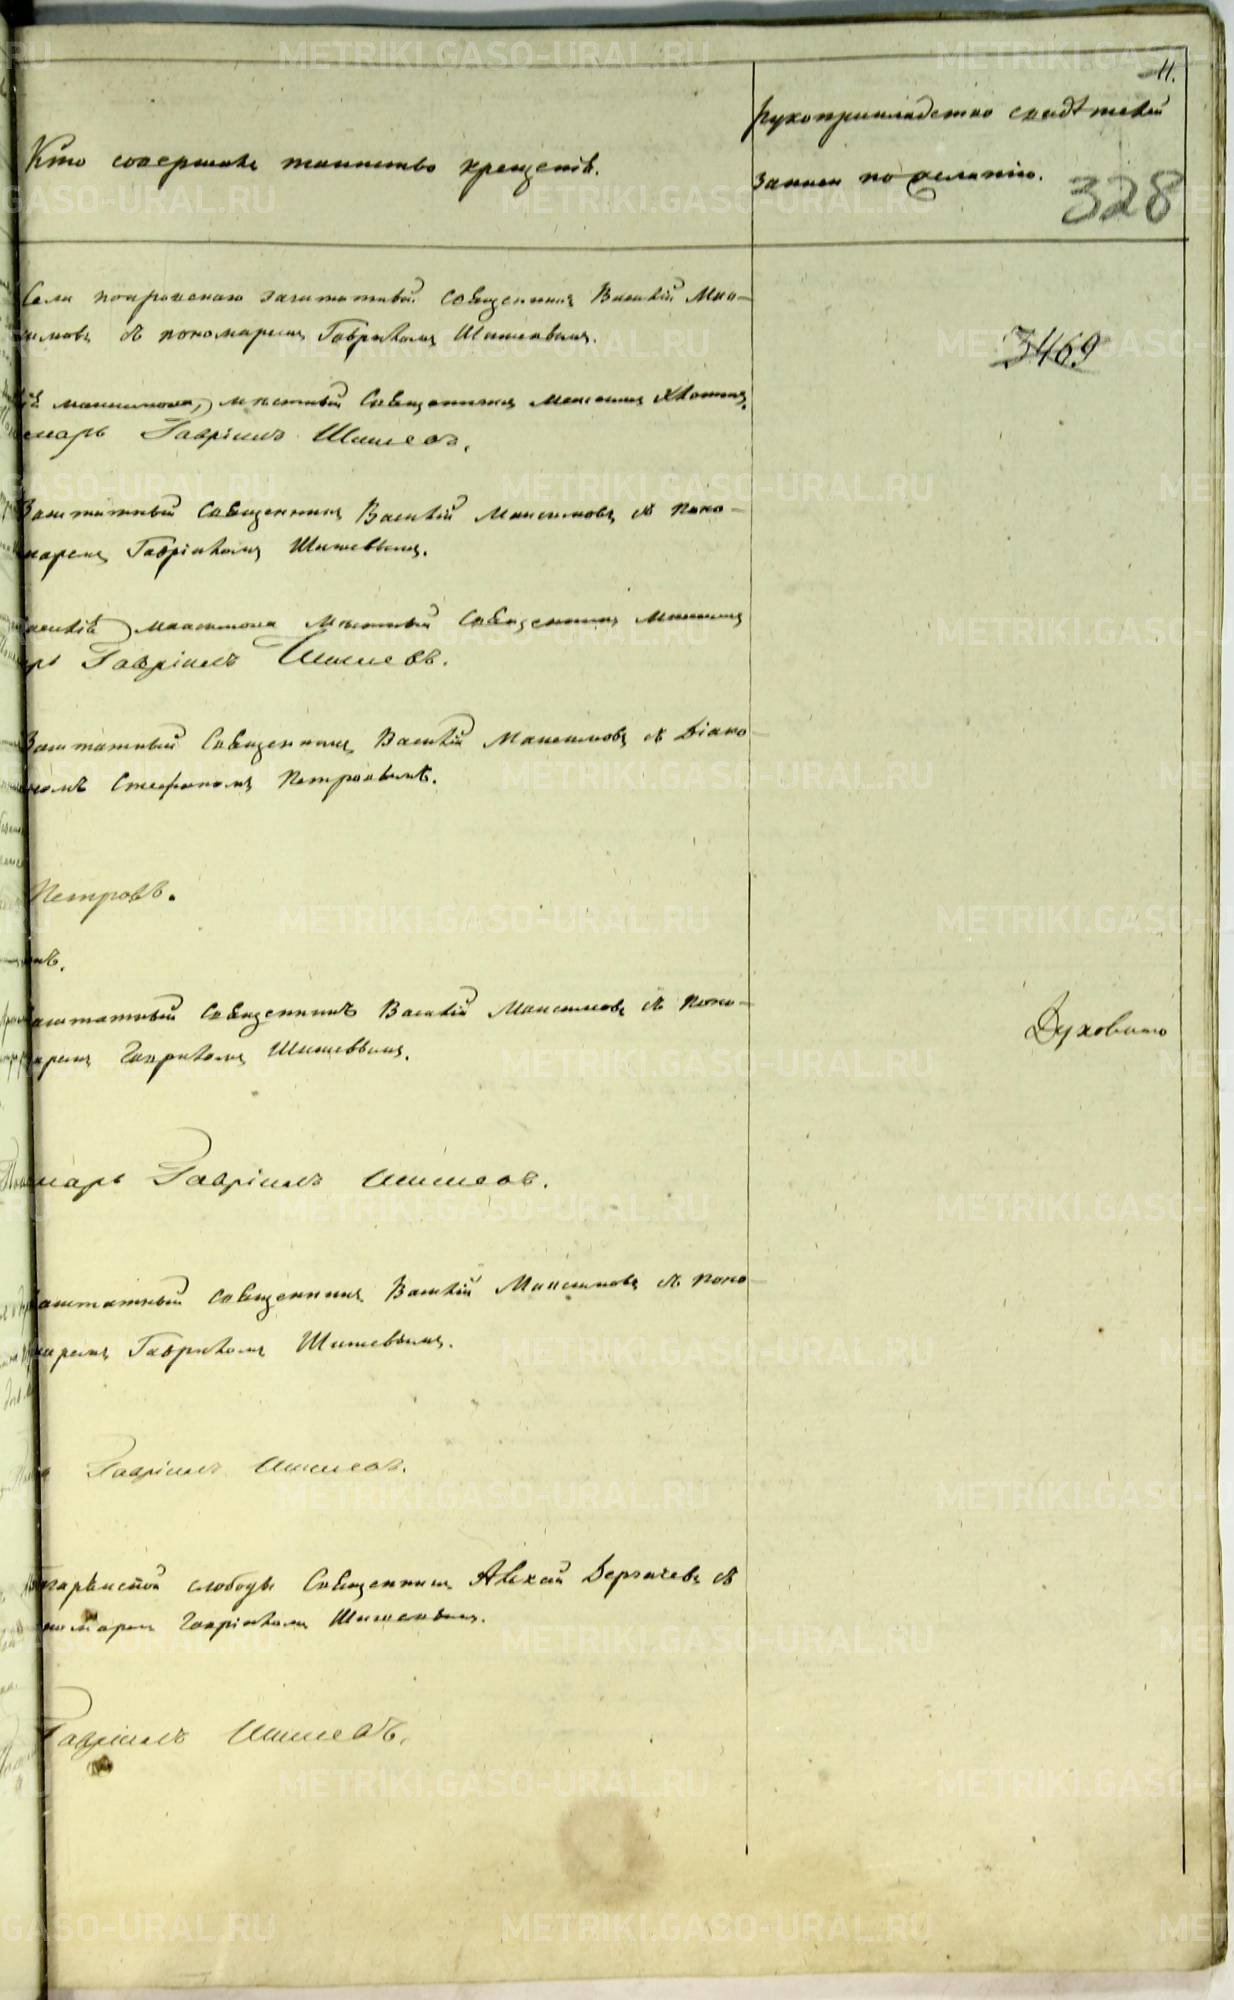 11.
Кто совершалъ таинство крещенія.
Рукоприкладство свидѣтелей
записи по желанію.
328
Села Покровскаго заштатный Священникъ Василій Мак-
симовъ съ пономаремъ Гавріиломъ Шишевымъ.
3469
Максимова, мѣстный Священникъ Максимъ
марь Гавріилъ Шишевъ.
Заштатный Священникъ Василій Максимовъ съ Поно-
маремъ Гавріиломъ Шишевымъ.
асилій Максимова мѣстный Священникъ Максимъ
рь Гавріилъ Шишевъ.
Заштатный Священникъ Василій Максимовъ съ Діако-
номъ Стефаномъ Петровымъ.
Петровъ.
нъ.
аштатный Священникъ Василій Максимовъ съ Поно-
маремъ Гавріиломъ Шишевымъ.
Духовнаго
марь Гавріилъ Шишевъ.
аштатный Священникъ Василій Максимовъ съ Поно-
маремъ Гавріиломъ Шишевымъ.
ь Гавріилъ Шишевъ.
слободы Священникъ Алексѣй Дергачевъ съ
номаремъ Гавріиломъ Шишевымъ.
Гавріилъ Шишевъ.
METRIKI.GASO-URAL.RU